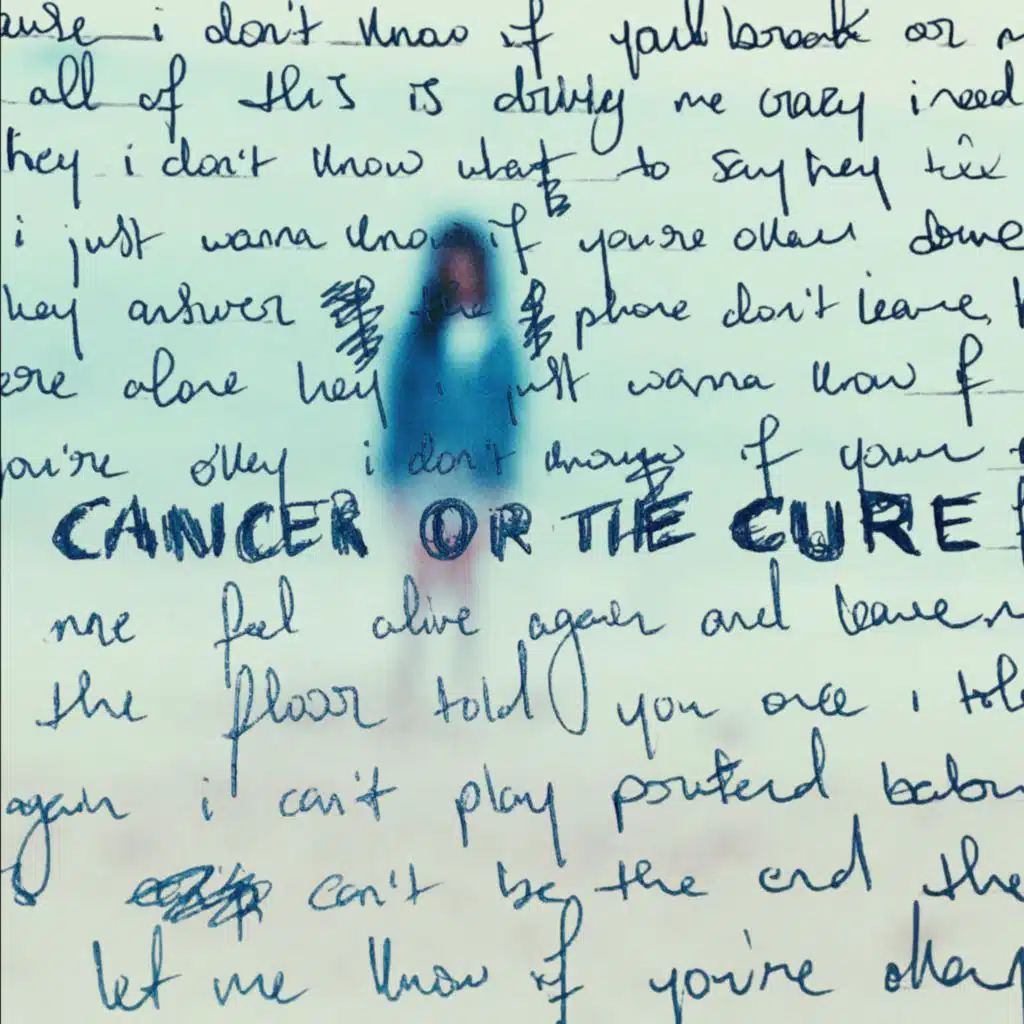 ause i don't know if you'll break or
all of this is driving me crazy i need
hey i don't know what to say hey
i just wanna know if you're okay
hey answer the phone don't leave
ere alone hey i just wanna know if
you're okey i don't know if your
CANCER OR THE CURE
me feel alive again and leave
the floor told you once i tol
again i can't play pretend
can't be the end the
let me know if you're okay